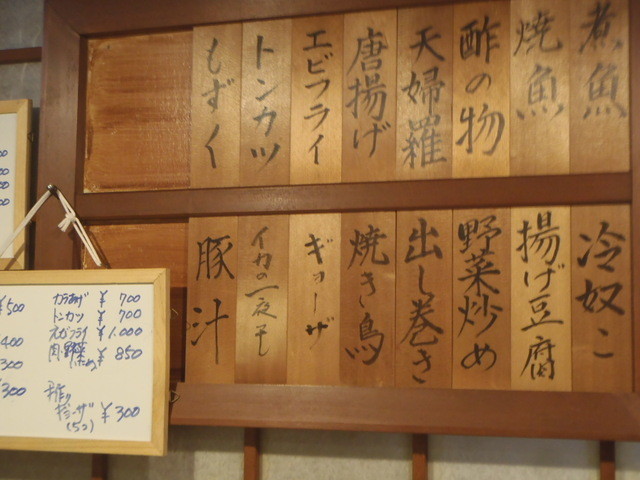 煮魚
焼魚
酢の物
天婦羅
唐揚げ
エビフライ
トンカツ
もずく
冷奴こ
揚げ豆腐
野菜炒め
出し巻き
焼き鳥
ギョーザ
イカの一夜干し
豚汁
カラあげ ¥700
トンカツ ¥700
エビフライ ¥1,000
肉・野菜炒め ¥850
ギョーザ ¥300
(5つ)
¥500
¥400
¥300
¥300